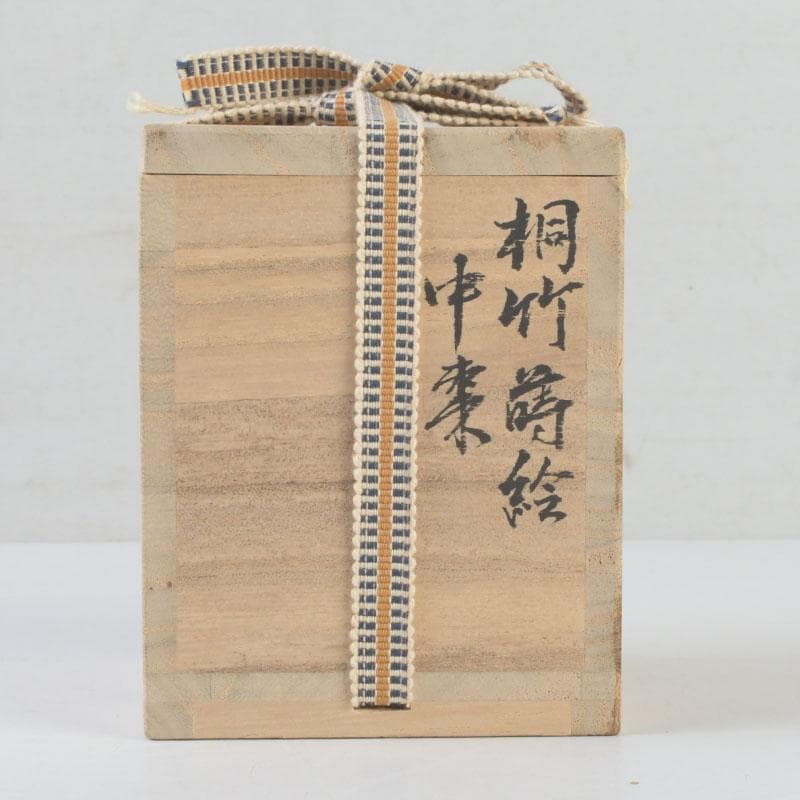 桐竹蒔絵
中棗